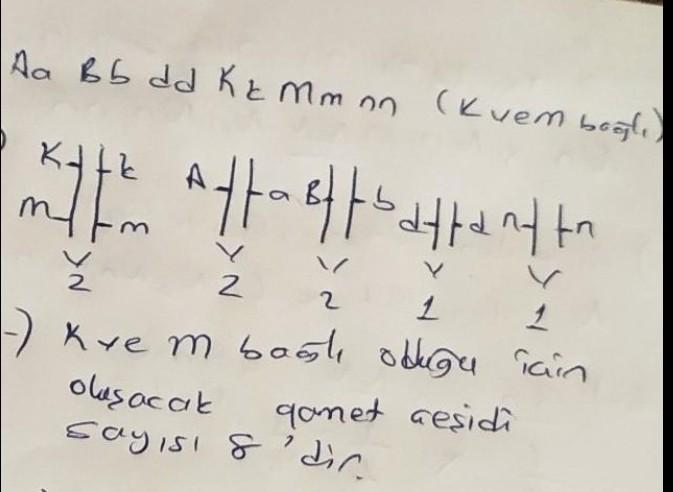 Aa Bb dd Kk Mm nn (K ve m bağlı)
K k A a B b d d n n
m m
2 2 2 1 1
-) K ve m bağlı olduğu için
oluşacak gamet çeşidi
sayısı 8'dir.